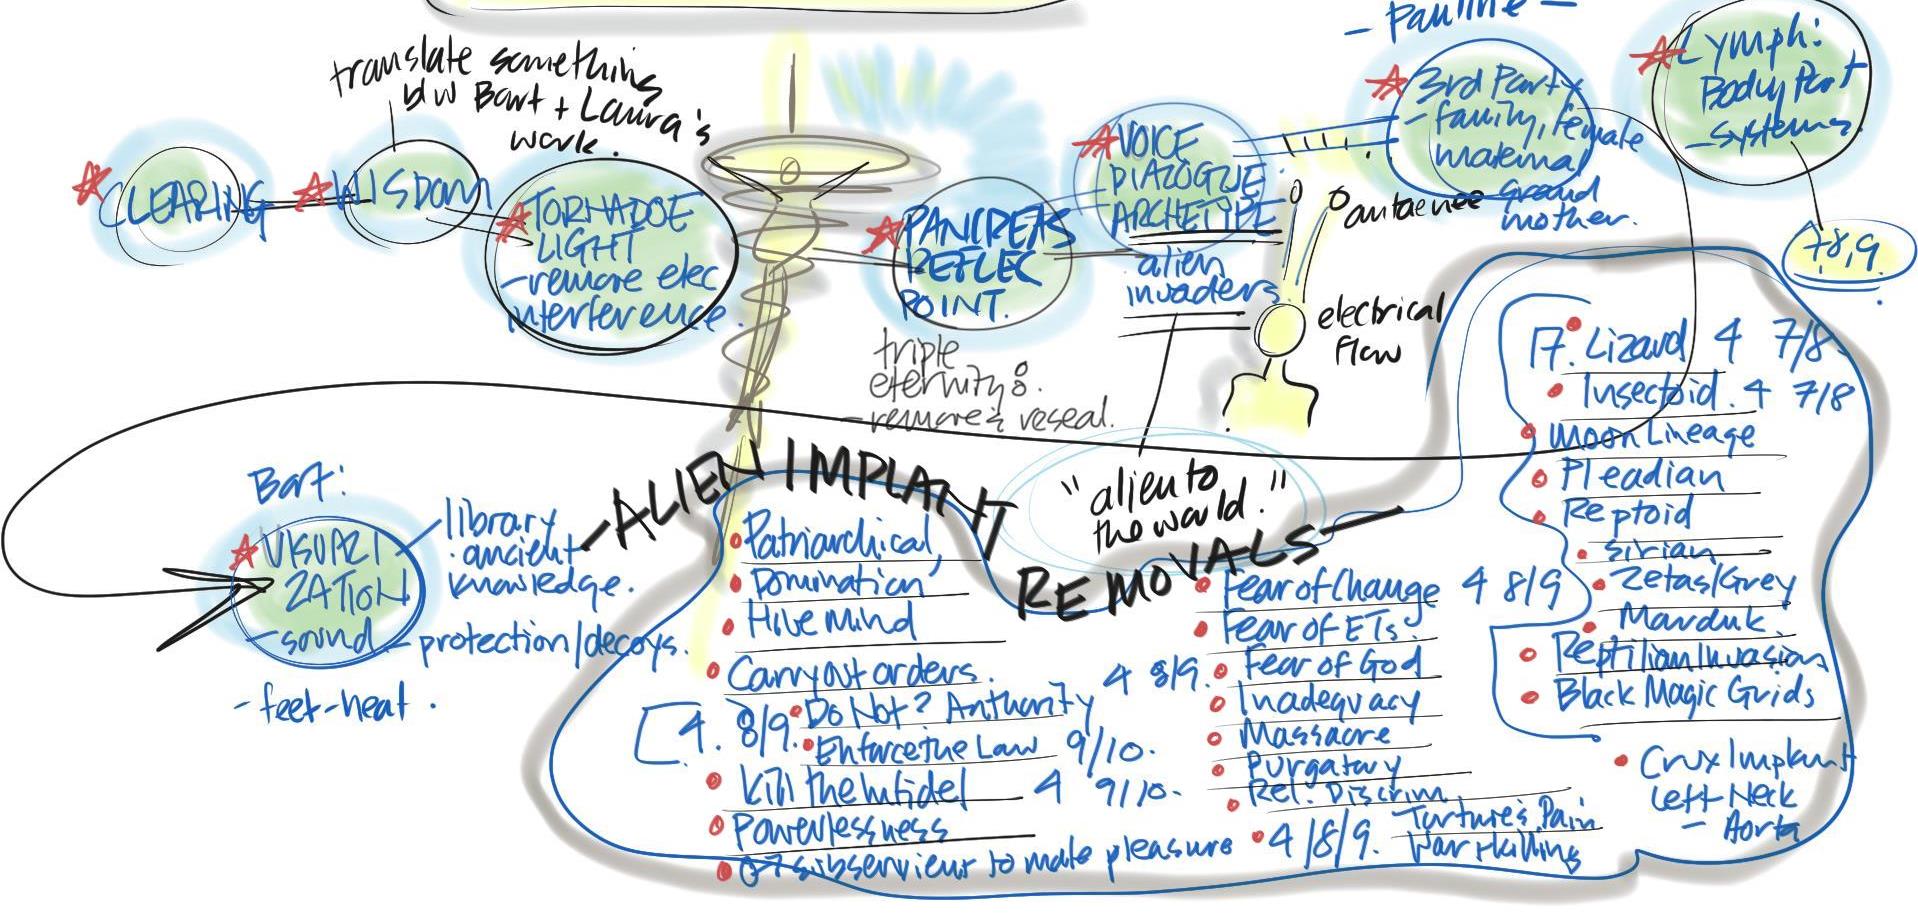 - Pauline -
translate something
b/w Bart + Laura's
work.
CLEARING
WISDOM
TORNADOE
LIGHT
- remove elec
interference.
PANCREAS
REFLEC
POINT.
triple
eternity 8.
- remove & reseal.
VOICE
DIALOGUE
ARCHETYPE
alien
invaders
"alien to
the world."
antaenee
electrical
flow
3rd Party
- family, female
maternal
ground
mother.
Lymph:
Body Part
- systems
78,9.
Bart:
VISUALI
ZATION
- sound
library
. ancient
knowledge.
- protection/decoys.
- feet-heat.
- ALIEN IMPLANT
REMOVALS -
Patriarchical
Domination
Hive Mind
Carry out orders.
4. 8/9. Do Not? Authority 4 8/9.
Enforce the Law 9/10.
Kill the Infidel 4 9/10.
Powerlessness
subservient to male pleasure
Fear of Change 4 8/9
Fear of ETs.
Fear of God
Inadequacy
Massacre
Purgatory
Rel. Discrim.
4/8/9. Torture & Pain
War + killing
17. Lizard 4 7/8.
Insectoid. 4 7/8
Moon Lineage
Pleadian
Reptoid
Sirian
Zetas/Grey
Marduk
Reptilian Invasion
Black Magic Grids
Crux Implant
Left Neck
- Aorta